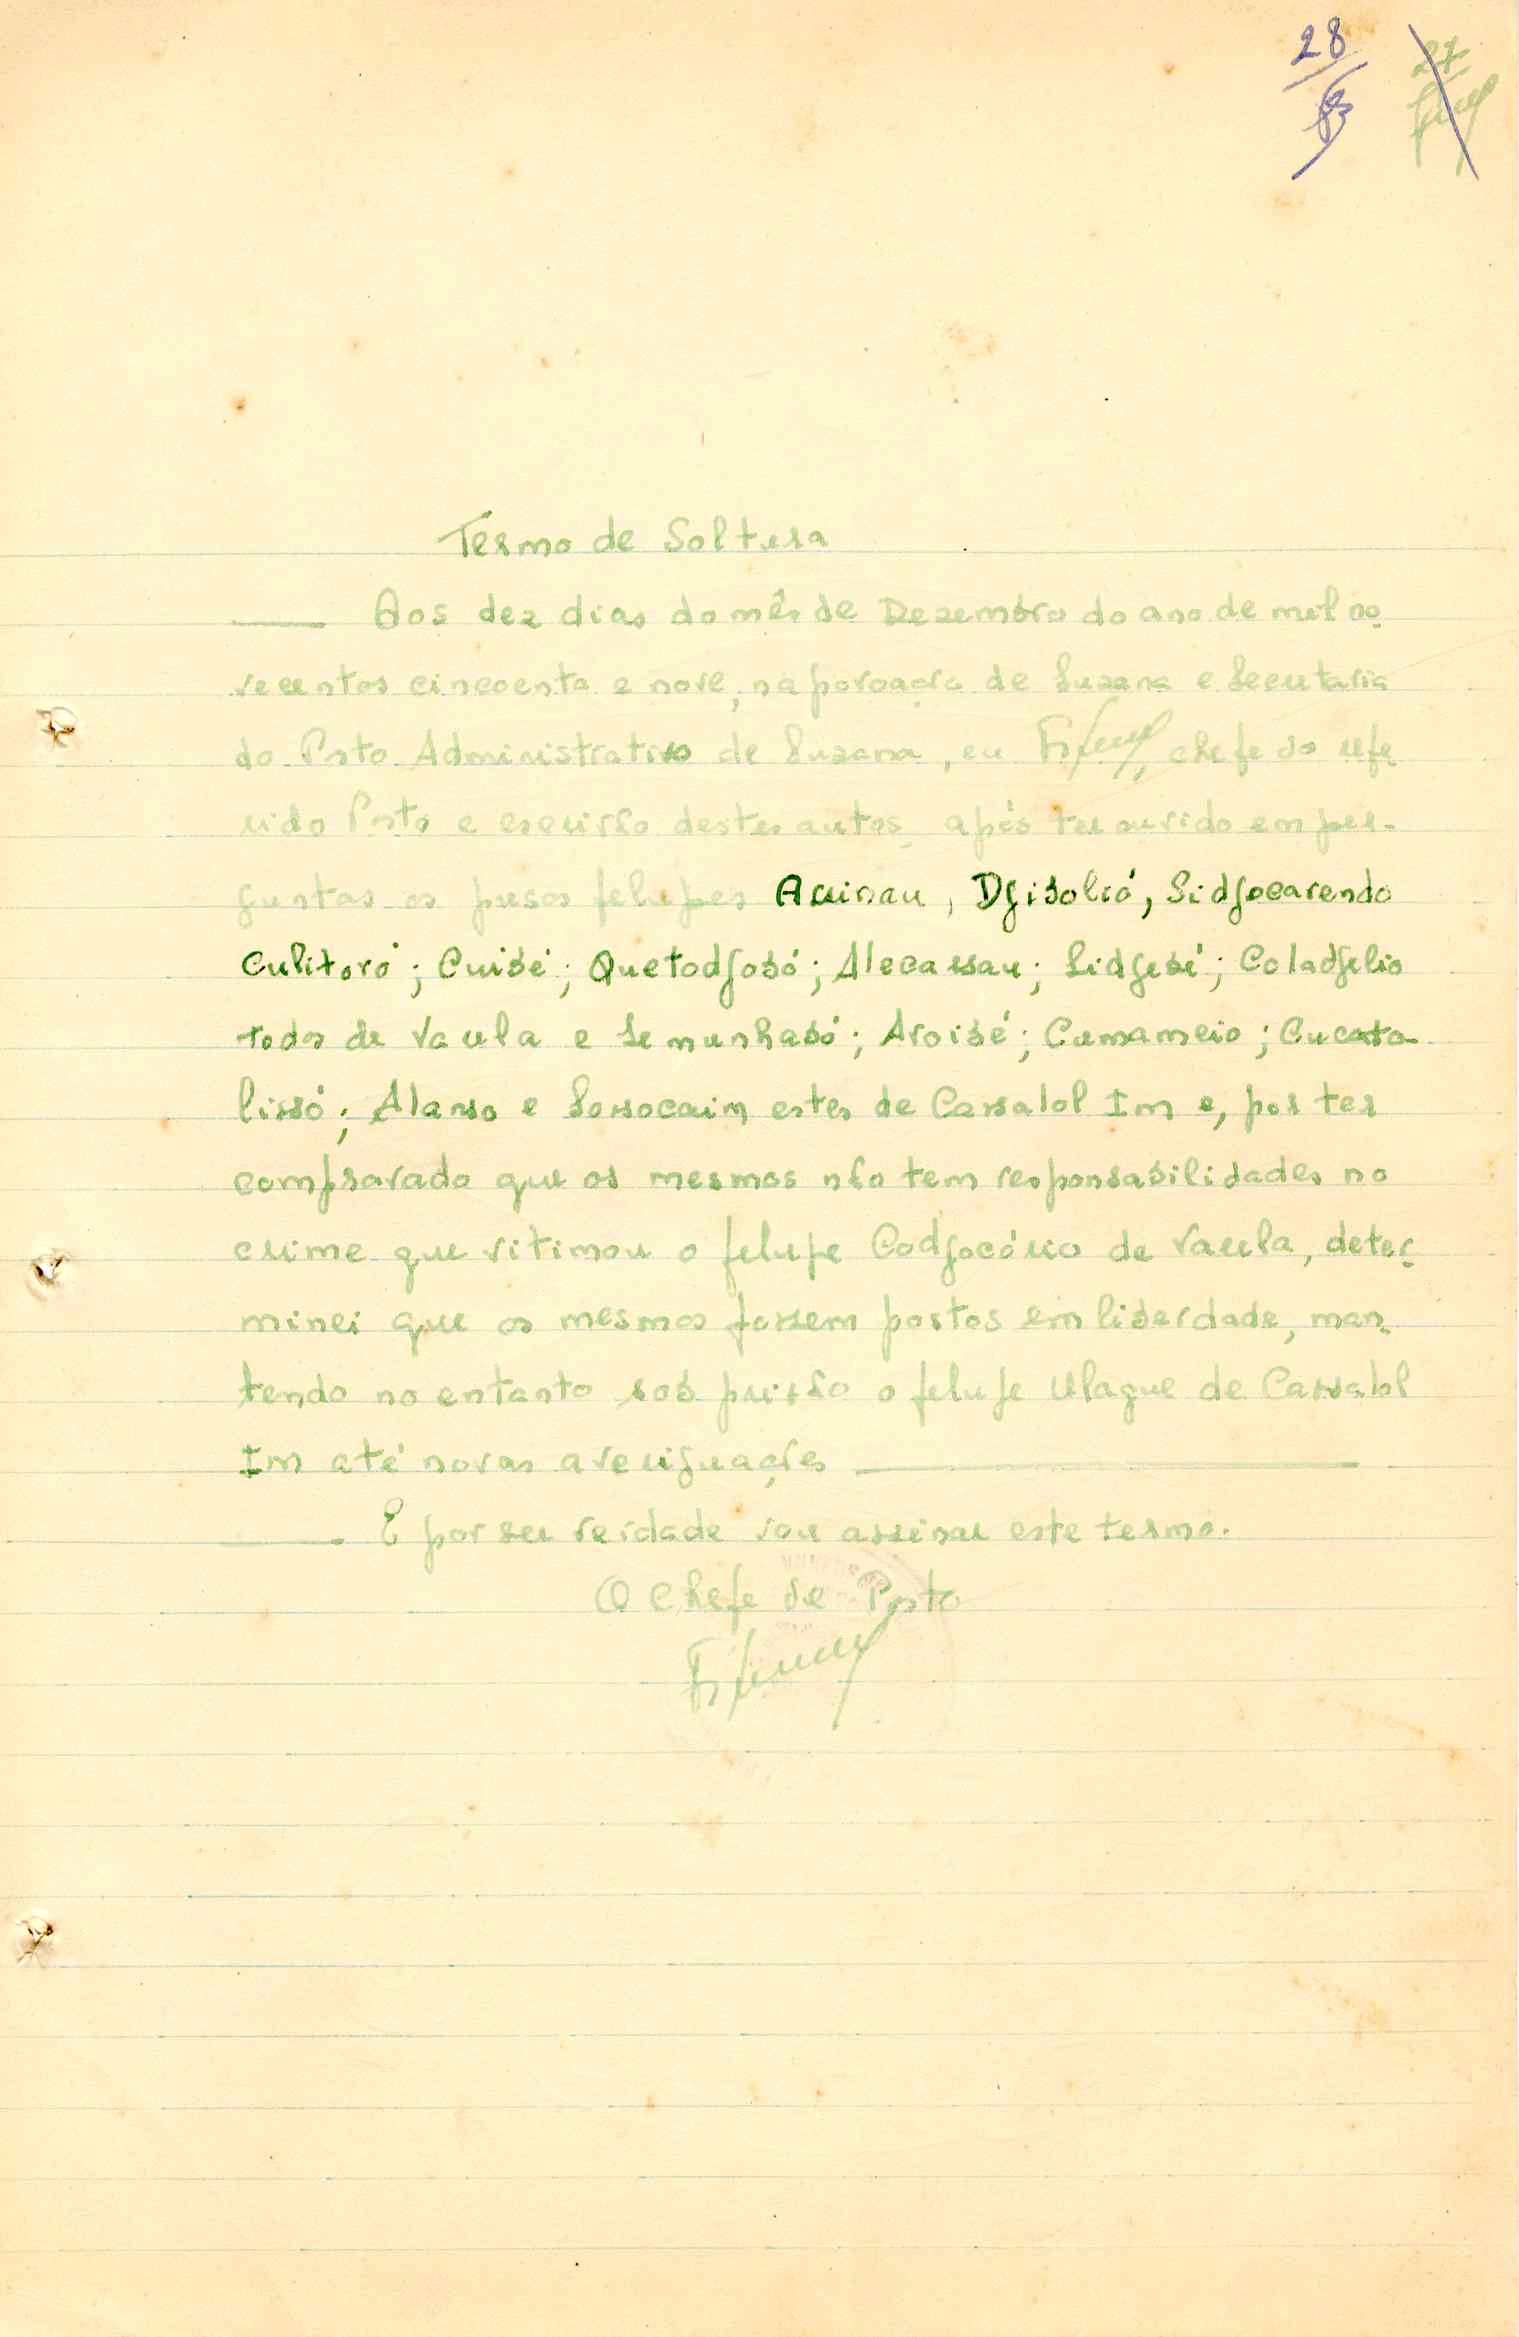 28
27
Termo de Soltura
Aos dez dias do mês de Dezembro do ano de mil no-
vecentos cincoenta e nove, na povoação de Suzana e Secretaria
do Posto Administrativo de Suzana, eu chefe do refe-
rido Posto e escrivão destes autos, após ter ouvido em per-
guntas os presos felupes Auinau, Dgibolió, Sidgocarendo
Culitoró; Cuibé; Quetodgobó; Alecassau; Sidgebé; Coladgelio
todos de Varela e Semunhabó; Aroibé; Cumameio; Cucata-
lissó; Alanso e Sossocaim estes de Cassalol Im e, por ter
comprovado que os mesmos não tem responsabilidades no
crime que vitimou o felupe Codgocório de Varela, deter-
minei que os mesmos fossem postos em liberdade, man-
tendo no entanto sob prisão o felupe Ulague de Cassalol
Im até novas averiguações
E por ser verdade vou assinar este termo.
O Chefe de Posto